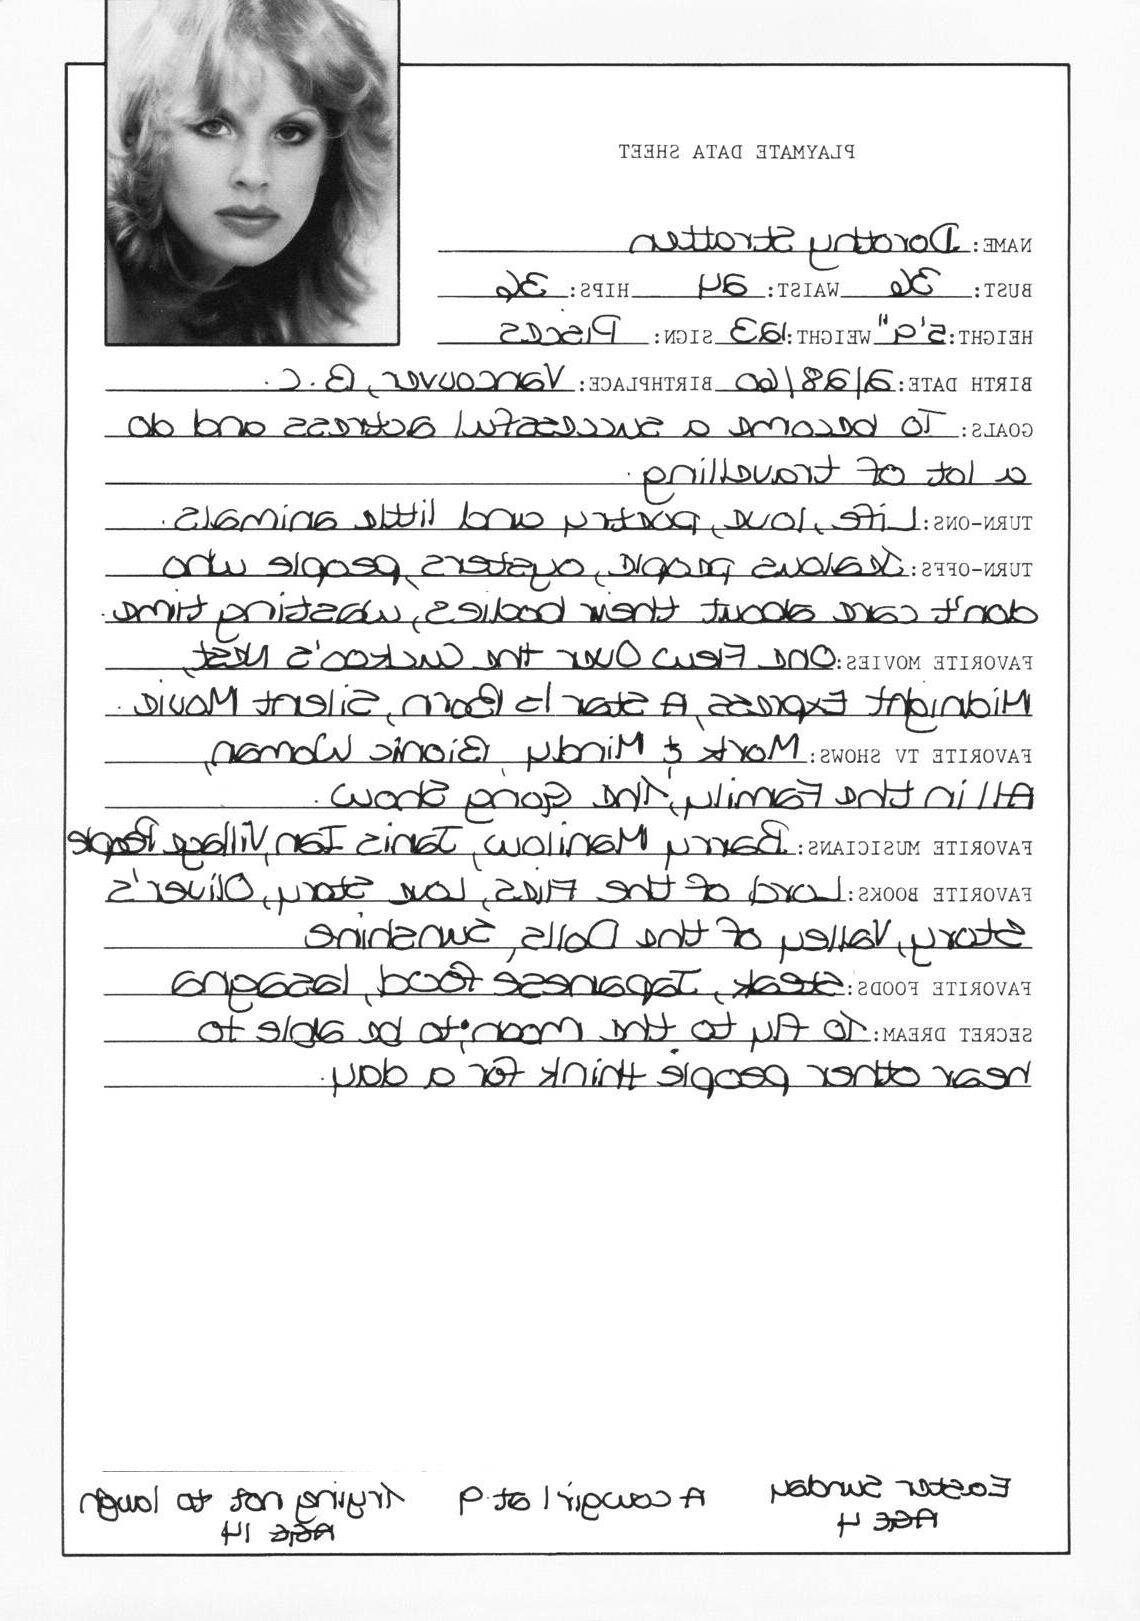 PLAYMATE DATA SHEET
NAME: Dorothy Stratten
BUST: 36 WAIST: 24 HIPS: 36
HEIGHT: 5'9" WEIGHT: 123 SIGN: Pisces
BIRTH DATE: 2/28/60 BIRTHPLACE: Vancouver, B.C.
GOALS: To become a successful actress and do
a lot of travelling.
TURN-ONS: Life, love, poetry and little animals.
TURN-OFFS: Jealous people, oysters, people who
don't care about their bodies, wasting time.
FAVORITE MOVIES: One Flew Over the Cuckoo's Nest,
Midnight Express, A Star Is Born, Silent Movie.
FAVORITE TV SHOWS: Mork & Mindy, Bionic Woman,
All in the Family, The Gong Show.
FAVORITE MUSICIANS: Barry Manilow, Janis Ian, Village People
FAVORITE BOOKS: Lord of the Flies, Love Story, Oliver's
Story, Valley of the Dolls, Sunshine
FAVORITE FOODS: Steak, Japanese food, lasagna
SECRET DREAM: To fly to the moon; to be able to
hear other people think for a day.
Easter Sunday A cowgirl at 9 Trying not to laugh
AGE 4 AGE 14